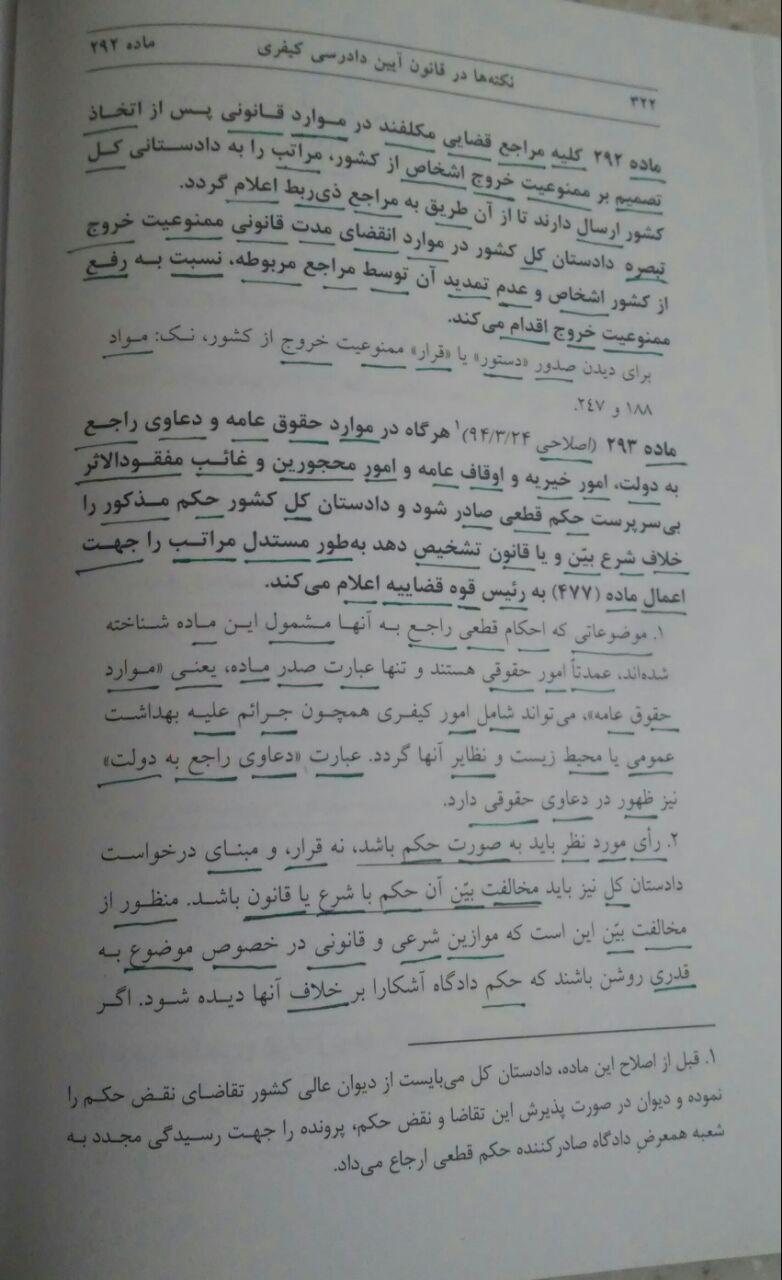 ۳۲۲ نکته‌ها در قانون آیین دادرسی کیفری ماده ۲۹۲
ماده ۲۹۲ کلیه مراجع قضایی مکلفند در موارد قانونی پس از اتخاذ
تصمیم بر ممنوعیت خروج اشخاص از کشور، مراتب را به دادستانی کل
کشور ارسال دارند تا از آن طریق به مراجع ذی‌ربط اعلام گردد.
تبصره دادستان کل کشور در موارد انقضای مدت قانونی ممنوعیت خروج
از کشور اشخاص و عدم تمدید آن توسط مراجع مربوطه، نسبت به رفع
ممنوعیت خروج اقدام می‌کند.
برای دیدن صدور «دستور» یا «قرار» ممنوعیت خروج از کشور، نک: مواد
۱۸۸ و ۲۴۷.
ماده ۲۹۳ (اصلاحی ۹۴/۳/۲۴)۱ هرگاه در موارد حقوق عامه و دعاوی راجع
به دولت، امور خیریه و اوقاف عامه و امور محجورین و غائب مفقودالاثر
بی‌سرپرست حکم قطعی صادر شود و دادستان کل کشور حکم مذکور را
خلاف شرع بیّن و یا قانون تشخیص دهد به‌طور مستدل مراتب را جهت
اعمال ماده (۴۷۷) به رئیس قوه قضاییه اعلام می‌کند.
۱. موضوعاتی که احکام قطعی راجع به آنها مشمول این ماده شناخته
شده‌اند، عمدتاً امور حقوقی هستند و تنها عبارت صدر ماده، یعنی «موارد
حقوق عامه»، می‌تواند شامل امور کیفری همچون جرائم علیه بهداشت
عمومی یا محیط زیست و نظایر آنها گردد. عبارت «دعاوی راجع به دولت»
نیز ظهور در دعاوی حقوقی دارد.
۲. رأی مورد نظر باید به صورت حکم باشد، نه قرار، و مبنای درخواست
دادستان کل نیز باید مخالفت بیّن آن حکم با شرع یا قانون باشد. منظور از
مخالفت بیّن این است که موازین شرعی و قانونی در خصوص موضوع به
قدری روشن باشند که حکم دادگاه آشکارا بر خلاف آنها دیده شود. اگر
۱. قبل از اصلاح این ماده، دادستان کل می‌بایست از دیوان عالی کشور تقاضای نقض حکم را
نموده و دیوان در صورت پذیرش این تقاضا و نقض حکم، پرونده را جهت رسیدگی مجدد به
شعبه همعرضِ دادگاه صادرکننده حکم قطعی ارجاع می‌داد.